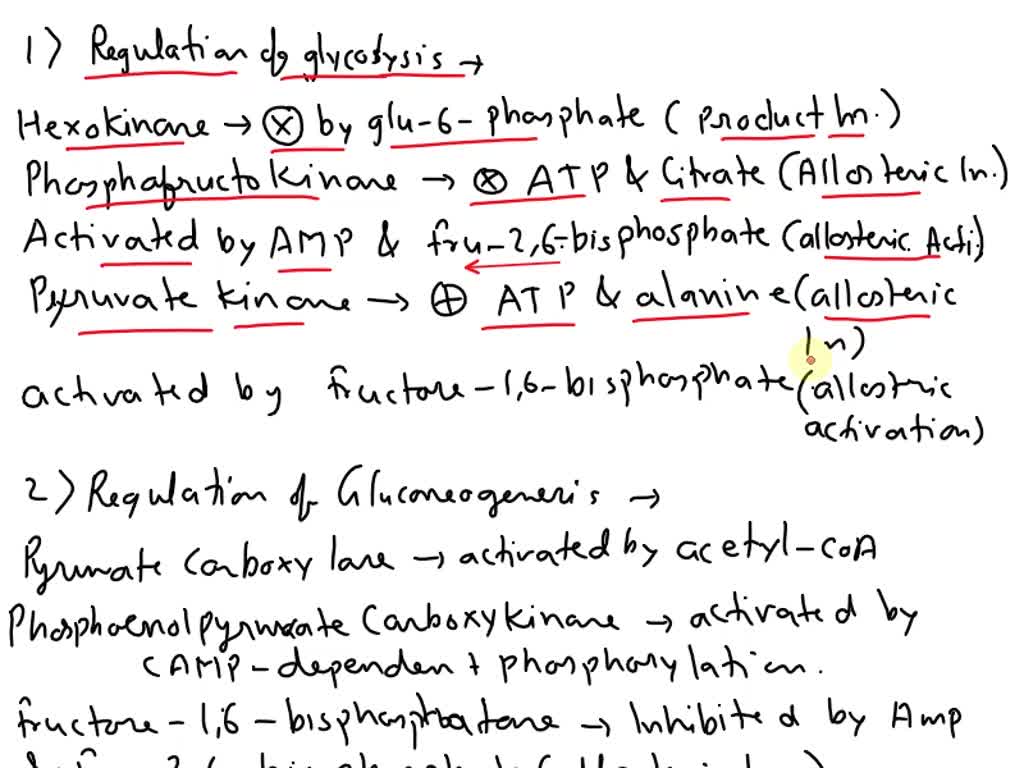 1) Regulation of glycolysis →
Hexokinase → ⊗ by glu-6-phosphate (Product In.)
Phosphofructokinase → ⊗ ATP & Citrate (Allosteric In.)
Activated by AMP & fru-2,6-bisphosphate (allosteric. Acti)
Pyruvate kinase → ⊕ ATP & alanine (allosteric
In)
activated by fructose-1,6-bisphosphate (allostric
activation)
2) Regulation of Gluconeogenesis →
Pyruvate Carboxylase → activated by acetyl-CoA
Phosphoenolpyruvate Carboxykinase → activated by
CAMP-dependent phosphorylation.
fructose-1,6-bisphosphatase → Inhibited by Amp